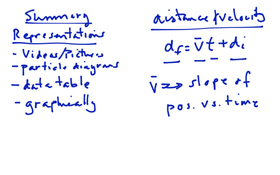 Summary
Representations
- Videos/Pictures
- particle diagrams
- data table
- graphically
distance & velocity
d_f = v̄ t + d_i
v̄ ⇒ slope of
pos. vs. time